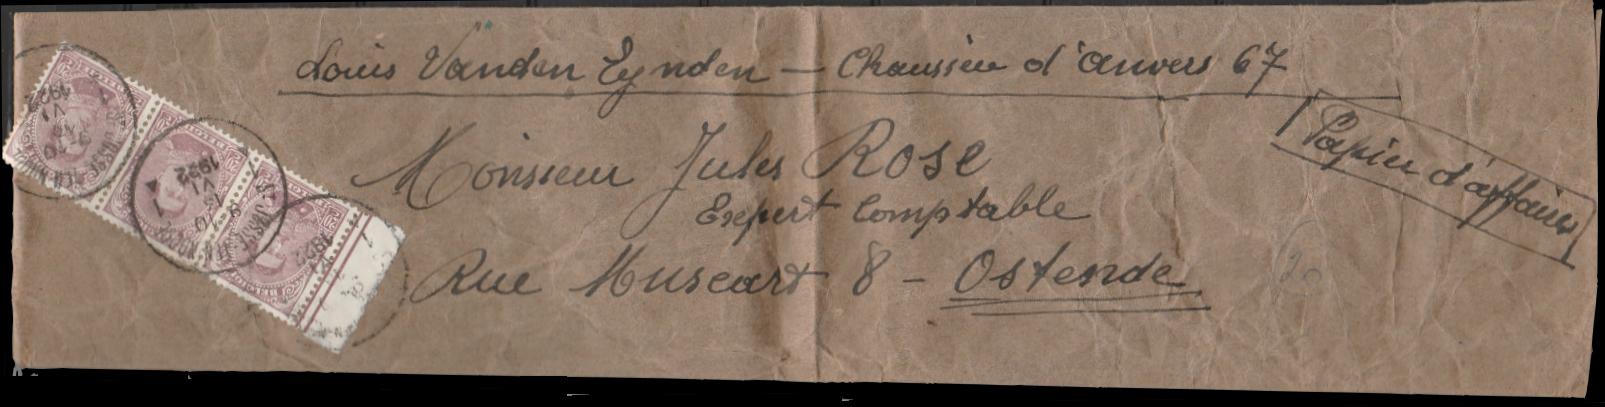 Louis Vanden Eynden – Chaussée d'Anvers 67
Monsieur Jules ROSE
Expert Comptable
Rue Muscart 8 – Ostende
Papier d'affaires
1932
VI
1932
VI
15
1932
BELGIQUE
20